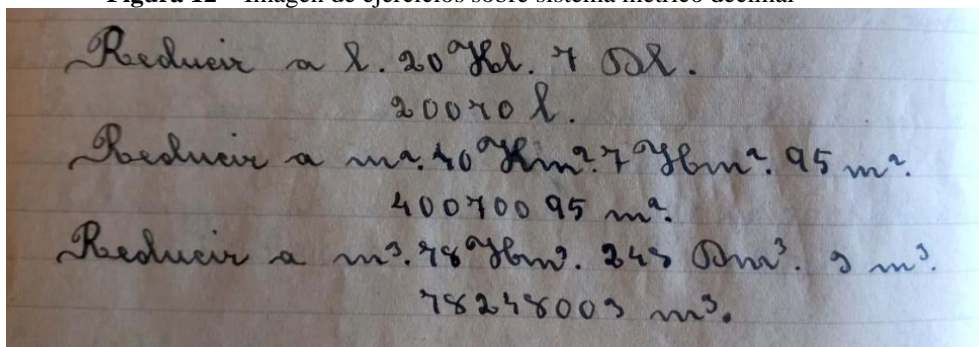 Figura 12 – Imagen de ejercicios sobre sistema métrico decimal
Reducir a l. 20 Kl. 7 Dl.
20070 l.
Reducir a m². 40 Km². 7 Hm². 95 m².
40070095 m².
Reducir a m³. 78 Hm³. 248 Dm³. 3 m³.
78248003 m³.